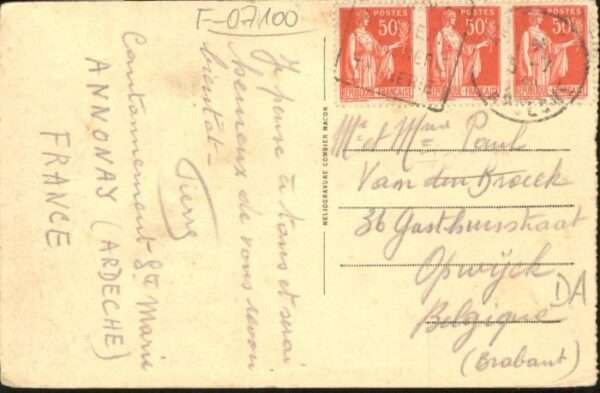 F-07100
Je pense à tous et serai
heureux de vous revoir
bientôt-
Pierre
Cantonnement Ste Marie
ANNONAY (ARDECHE)
FRANCE
HÉLIOGRAVURE COMBIER MACON
POSTES
50c
RÉPUBLIQUE FRANÇAISE
POSTES
50c
RÉPUBLIQUE FRANÇAISE
POSTES
50c
RÉPUBLIQUE FRANÇAISE
Mr et Mme Paul
Van den Broeck
36 Gasthuisstraat
Opwijck
Belgique
(Brabant)
DA